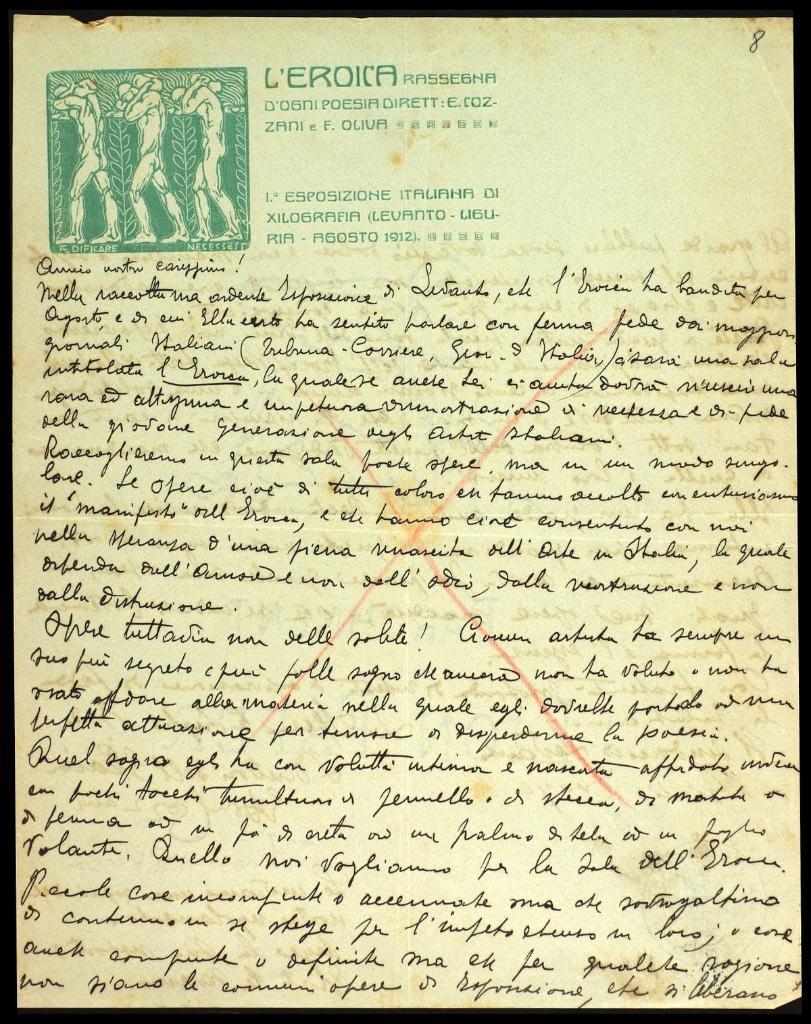 8
L'EROICA RASSEGNA
D'OGNI POESIA DIRETT: E. COZ-
ZANI e F. OLIVA
1.ª ESPOSIZIONE ITALIANA DI
XILOGRAFIA (LEVANTO - LIGU-
RIA - AGOSTO 1912).
ÆDIFICARE NECESSE EST
Amico nostro carissimo!
Nella raccolta ma ardente Esposizione di Levanto, che l'Eroica ha bandita per
Agosto, e di cui Ella certo ha sentito parlare con ferma fede dai maggiori
giornali Italiani (Tribuna - Corriere, Gior. d'Italia) ci sarà una sala
intitolata l'Eroica, la quale se anche Lei ci aiuta dovrà riuscire una
rara ed altissima e impetuosa dimostrazione di e di fede
della giovane generazione degli Artisti Italiani.
Raccoglieremo in questa sala poche opere, ma in un modo singo-
lare. Le opere cioè di tutti coloro che hanno accolto con entusiasmo
il "manifesto" dell'Eroica, e che hanno cioè consentito con noi
nella speranza d'una piena rinascita dell'Arte in Italia, la quale
dipenda dall'Amore e non dell'odio, dalla costruzione e non
dalla distruzione.
Opere tuttavia non delle solite! Ciascun artista ha sempre un
suo più segreto e più folle sogno che ancora non ha voluto o non ha
osato affidare alla materia nella quale egli dovrebbe portarlo ad una
perfetta attuazione per timore di disperderne la poesia.
Quel sogno egli ha con voluttà intima e nascosta affidato
con pochi tocchi tumultuosi di pennello o di stecca, di matita o
di penna ad un pò di creta od un palmo di tela od un foglio
volante. Quello noi vogliamo per la Sala dell'Eroica.
Piccole cose incompiute o accennate ma che
di contenuto in se stesse per l'impeto chiuso in loro; o cose
anche compiute o definite ma che per qualche ragione
non siano le comuni opere di Esposizione, che si liberano